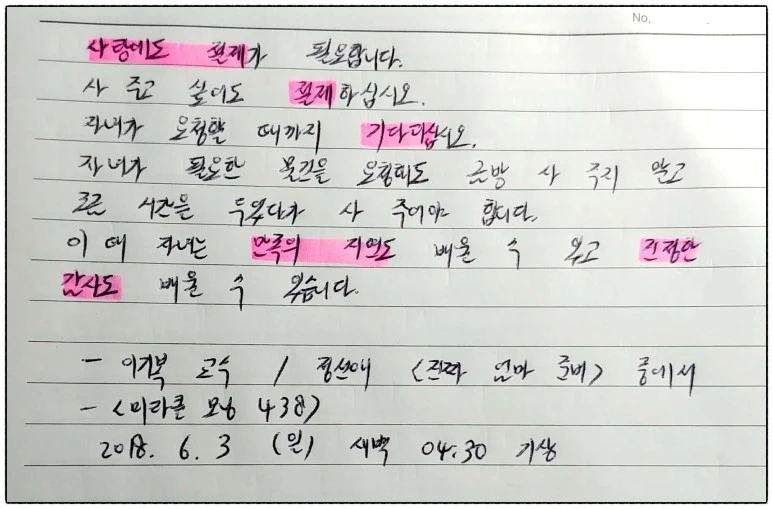 No.
사랑에도 절제가 필요합니다.
사 주고 싶어도 절제하십시오.
자녀가 요청할 때까지 기다리십시오.
자녀가 필요한 물건을 요청해도 금방 사 주지 말고
조금 시간을 두었다가 사 주어야 합니다.
이 때 자녀는 만족의 지연도 배울 수 있고 진정한
감사도 배울 수 있습니다.
- 이기복 교수 / 정선애 <진짜 엄마 준비> 중에서
- <미라클 모닝 438>
2018. 6. 3 (일) 새벽 04:30 기상